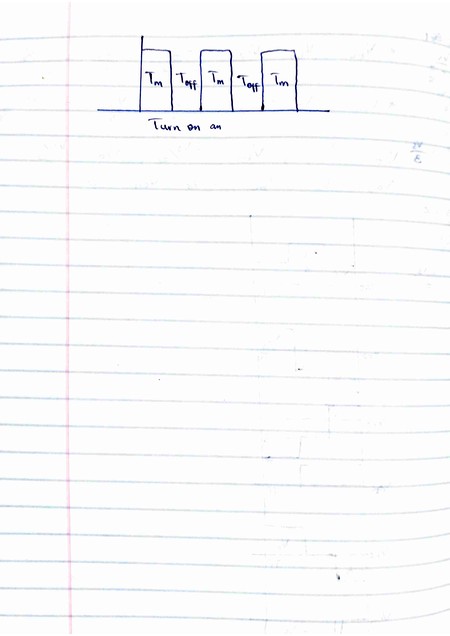 Tm Toff Tm Toff Tm
Turn on an